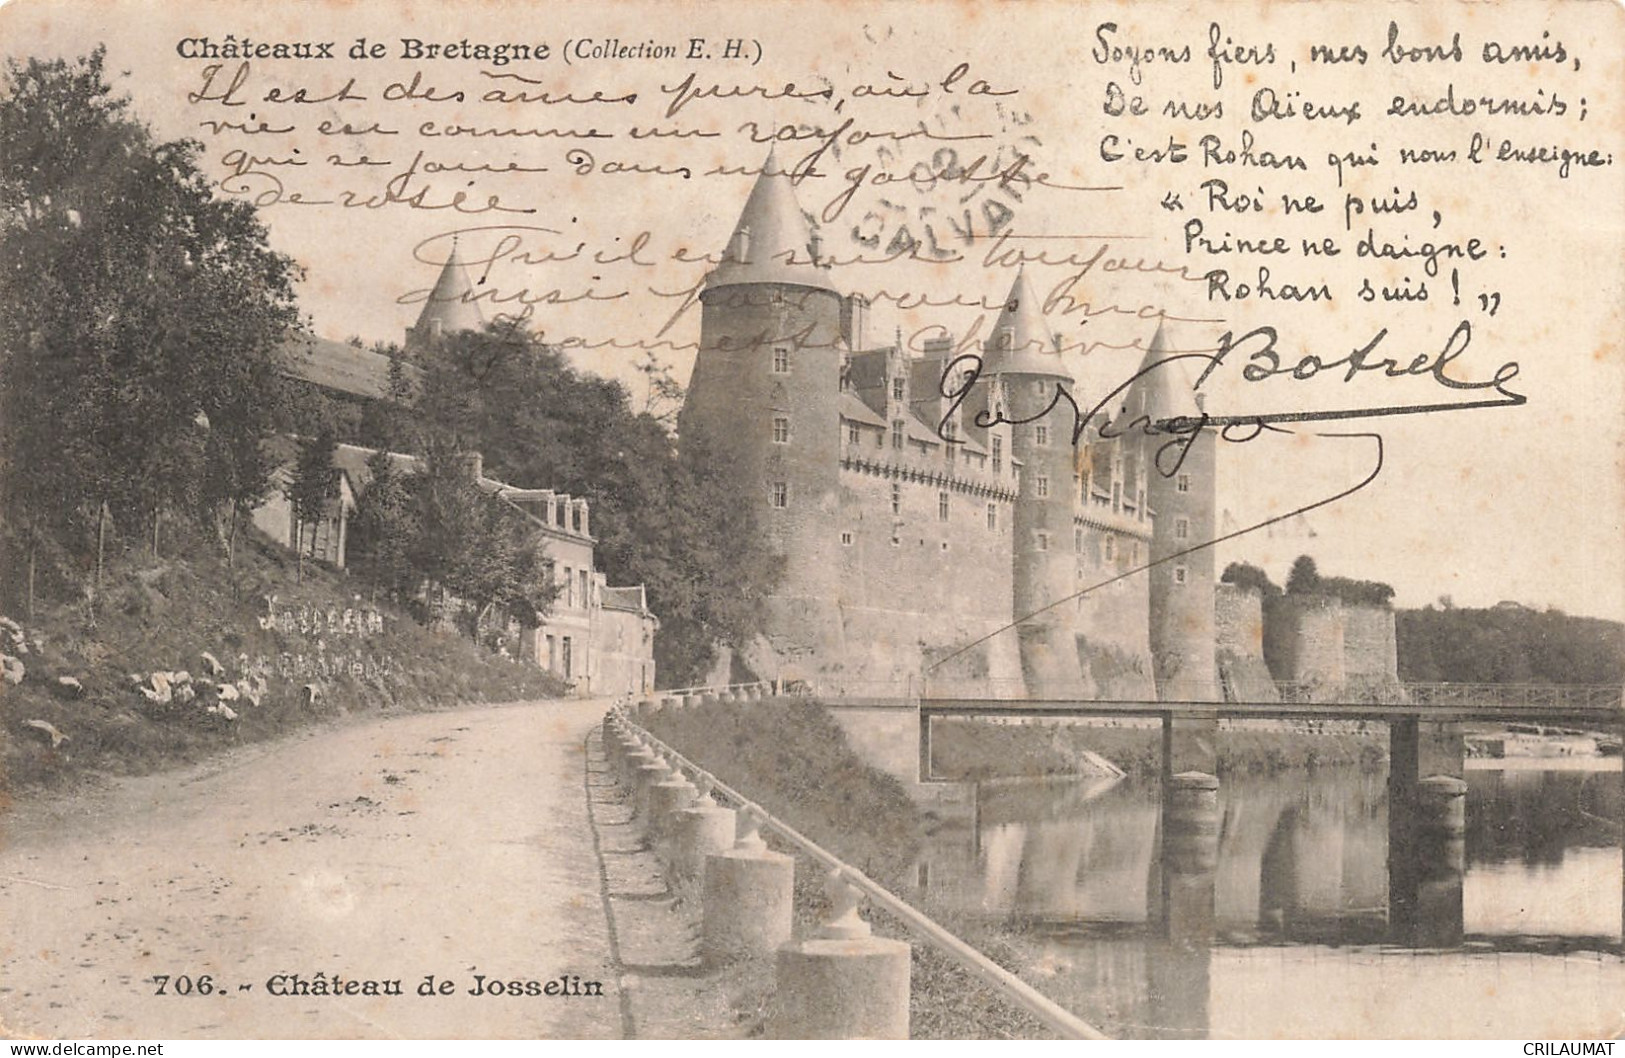 Châteaux de Bretagne (Collection E. H.)
Il est des âmes pures, où la
vie est comme un rayon
qui se joue dans une goutte
De rosée
Qu'il en soit toujours
ainsi pour vous ma
Jeannette Chérie
Soyons fiers, mes bons amis,
De nos Aïeux endormis;
C'est Rohan qui nous l'enseigne:
« Roi ne puis,
Prince ne daigne:
Rohan suis ! »
Botrel
02
CALVADOS
Josselin
Le Château
706. - Château de Josselin
CRILAUMAT